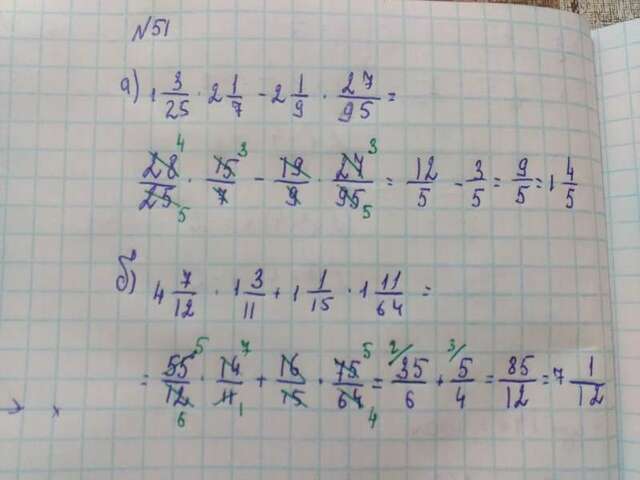 №51
а) 1 3/25 · 2 1/7 - 2 1/9 · 27/95 =
28/25 · 15/7 - 19/9 · 27/95 = 12/5 - 3/5 = 9/5 = 1 4/5
4 3 3
5 5
б) 4 7/12 · 1 3/11 + 1 1/15 · 1 11/64 =
= 55/12 · 14/11 + 16/15 · 75/64 = 35/6 + 5/4 = 85/12 = 7 1/12
5 7 5 2/ 3/
6 1 4